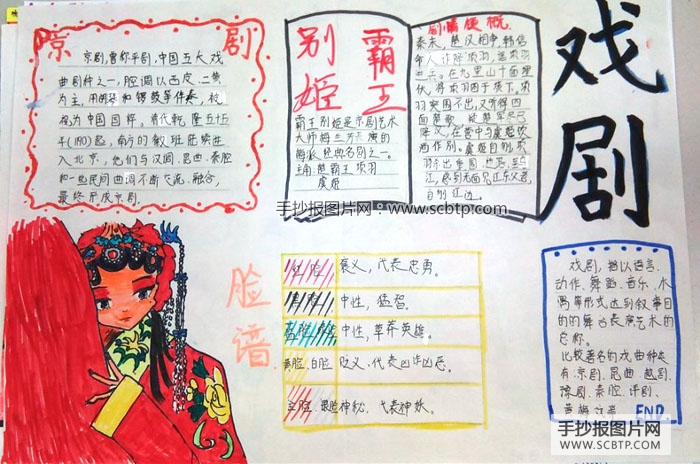 京剧
京剧,曾称平剧,中国五大戏
曲剧种之一,腔调以西皮、二黄
为主,用胡琴和锣鼓等伴奏,被
视为中国国粹,清代乾隆五十五
年(1790)起,南方的徽班陆续进
入北京,他们与汉调、昆曲、秦腔
和一些民间曲调不断交流、融合,
最终形成京剧
霸王
别姬
霸王别姬是京剧艺术
大师梅兰芳表演的
梅派经典名剧之一。
主角 霸王项羽
虞姬
剧情梗概
秦末,楚汉相争,韩信
命人诈降项羽,
在九里山十面埋
伏,将项羽困于垓下,项
羽突围不出,又听得四
面楚歌,
降汉,在营中与虞姬饮
酒作别。虞姬自刎,项
羽
江,感到无面见江东父老,
自刎江边
戏剧
手抄报图片网:www.scbtp.com
脸谱
红脸 褒义,代表忠勇。
黑脸 中性,猛智。
蓝脸 绿脸 中性,草莽英雄。
黄脸、白脸 贬义,代表凶诈凶恶。
金脸、银脸 神秘,代表神妖。
戏剧,指以语言、
动作、舞蹈、音乐、木
偶等形式达到叙事目
的的舞台表演艺术的
总称。
比较著名的戏曲种类
有:京剧、昆曲、越剧、
豫剧、秦腔、评剧、
END
手抄报图片网
SCBTP.COM